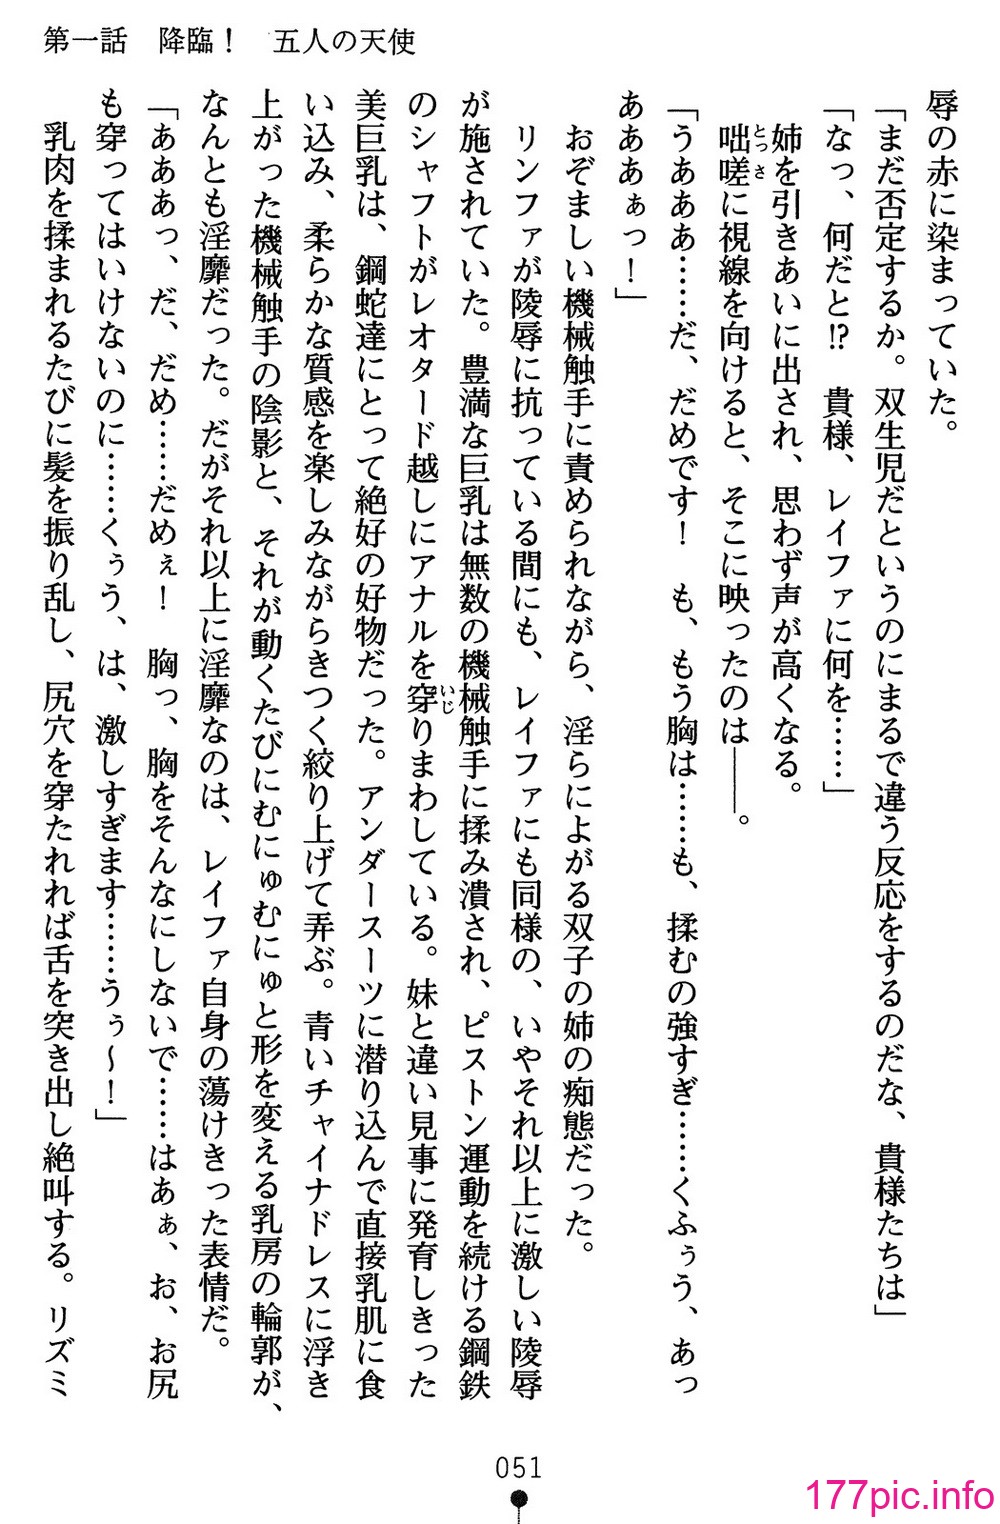 第一話　降臨！　五人の天使
辱の赤に染まっていた。
「まだ否定するか。双生児だというのにまるで違う反応をするのだな、貴様たちは」
「なっ、何だと!?　貴様、レイファに何を……」
姉を引きあいに出され、思わず声が高くなる。
咄嗟に視線を向けると、そこに映ったのは――。
「うあああ……だ、だめです！　も、もう胸は……も、揉むの強すぎ……くふぅう、あっ
あああぁっ！」
おぞましい機械触手に責められながら、淫らによがる双子の姉の痴態だった。
リンファが陵辱に抗っている間にも、レイファにも同様の、いやそれ以上に激しい陵辱
が施されていた。豊満な巨乳は無数の機械触手に揉み潰され、ピストン運動を続ける鋼鉄
のシャフトがレオタード越しにアナルを穿りまわしている。妹と違い見事に発育しきった
美巨乳は、鋼蛇達にとって絶好の好物だった。アンダースーツに潜り込んで直接乳肌に食
い込み、柔らかな質感を楽しみながらきつく絞り上げて弄ぶ。青いチャイナドレスに浮き
上がった機械触手の陰影と、それが動くたびにむにゅむにゅと形を変える乳房の輪郭が、
なんとも淫靡だった。だがそれ以上に淫靡なのは、レイファ自身の蕩けきった表情だ。
「あああっ、だ、だめ……だめぇ！　胸っ、胸をそんなにしないで……はあぁ、お、お尻
も穿ってはいけないのに……くぅう、は、激しすぎます……うぅ～！」
乳肉を揉まれるたびに髪を振り乱し、尻穴を穿たれれば舌を突き出し絶叫する。リズミ
とっさ
いじ
051
177pic.info